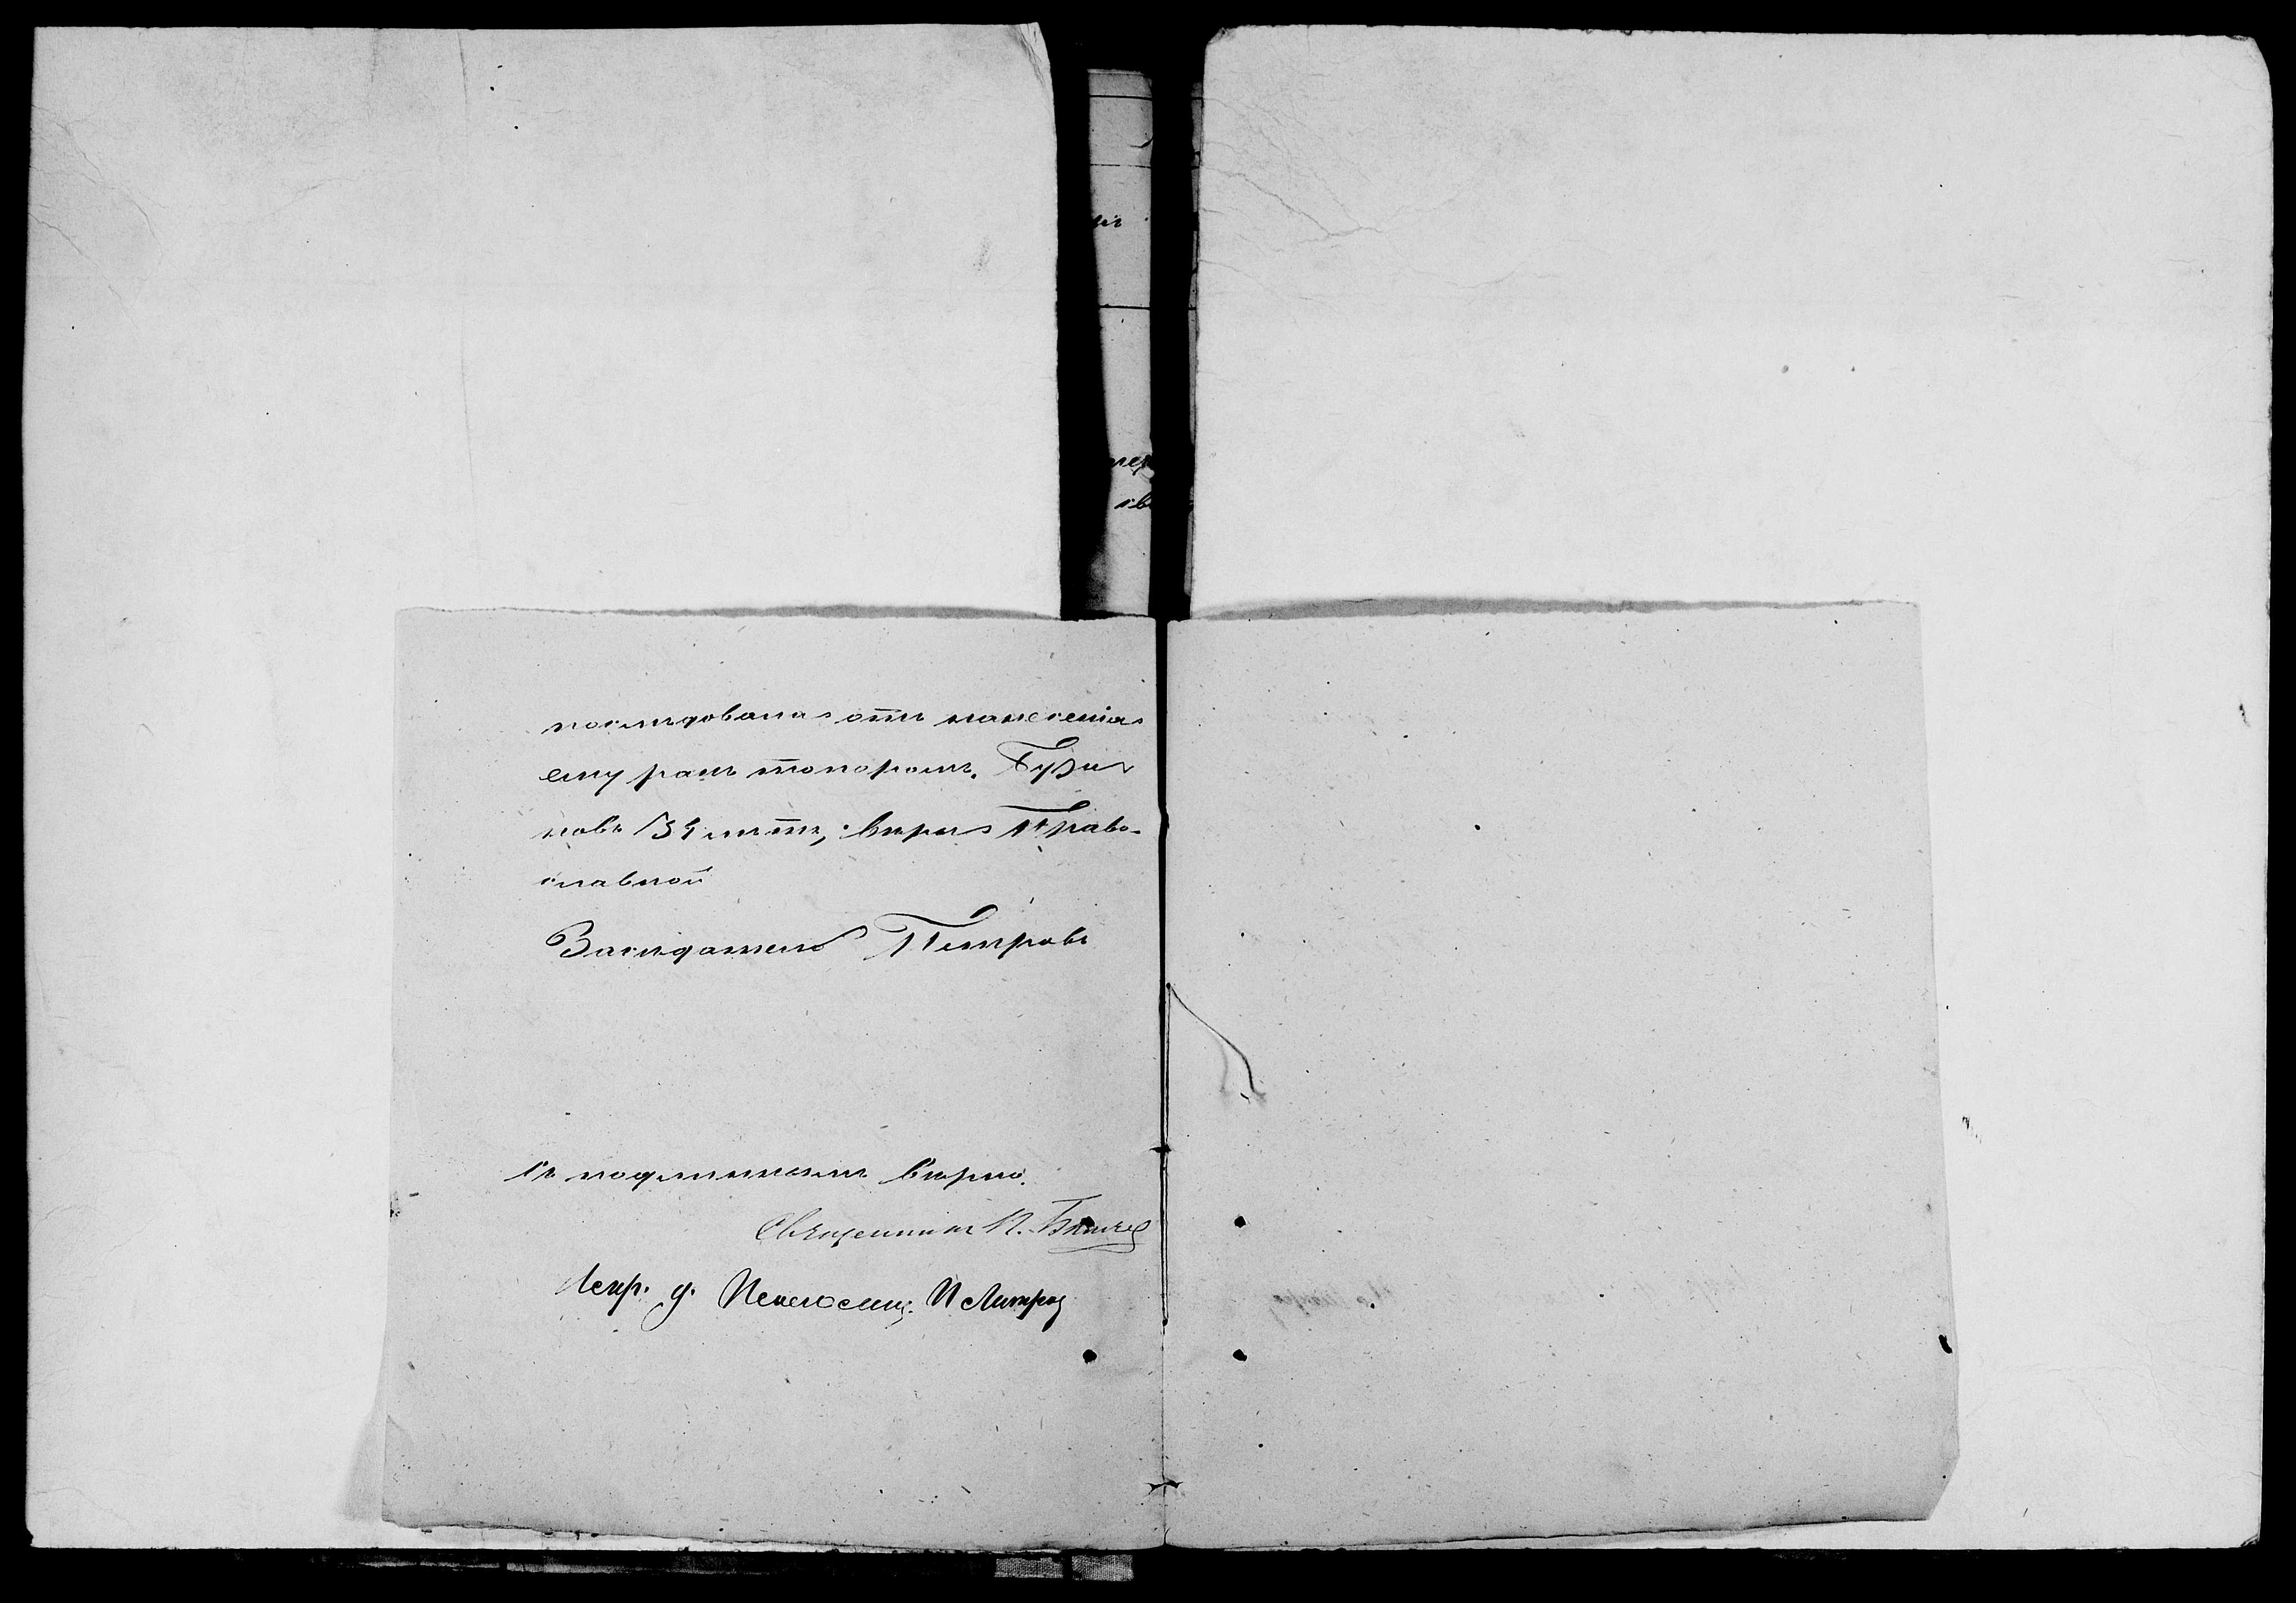 последовала отъ нанесенія
ему ранъ топоромъ. Бузи
новъ 34 лѣтъ, вѣры Право-
славной
Засѣдатель Петровъ
Съ подлиннымъ вѣрно.
Священникъ П.
Испр. д. Псаломщ. И